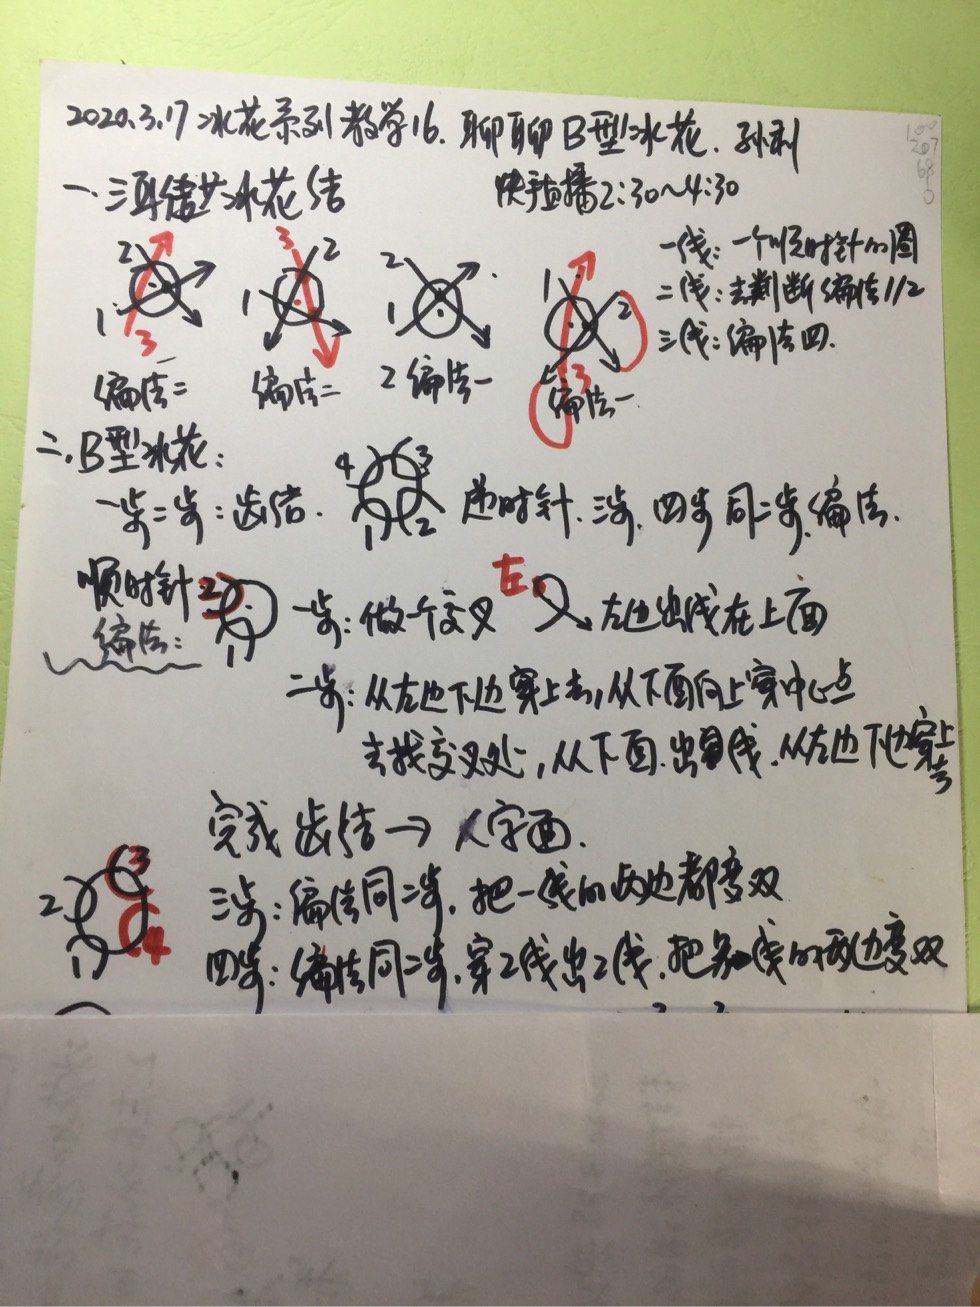 2020.3.17 冰花系列教学16. 聊聊B型冰花. 孙利
100
207
68
0
一. 三耳 冰花结
快手直播2:30~4:30
一线: 一个顺时针的圈
二线: 去判断编法1/2
三线: 编法四.
2 1 3
3 2 1
2 1
1 2 3
编法二
编法二
2 编法一
编法一
二. B型冰花:
一步二步: 齿结.
4 3 1 2
逆时针. 三步. 四步同二步编法.
顺时针
编法:
2 1
一步: 做一个交叉
左
左边出线在上面
二步: 从左边下边穿上去, 从下面向上穿中心点
去找交叉处, 从下面出线. 从左边下边穿上去
完成齿结→人字面.
2 3 1 4
三步: 编法同二步. 把一线的两边都变双
四步: 编法同二步. 穿2线出2线. 把 线的两边变双